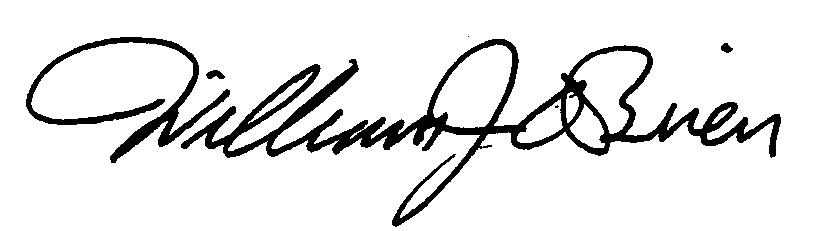 William J O'Brien